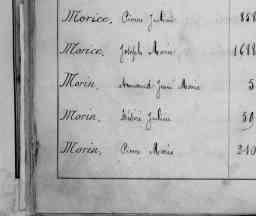 Morice, Pierre Julien 858
Morice, Joseph Marie 1688
Morin, Armand José Marie 5
Morin, Julien 50
Morin, Pierre Marie 240